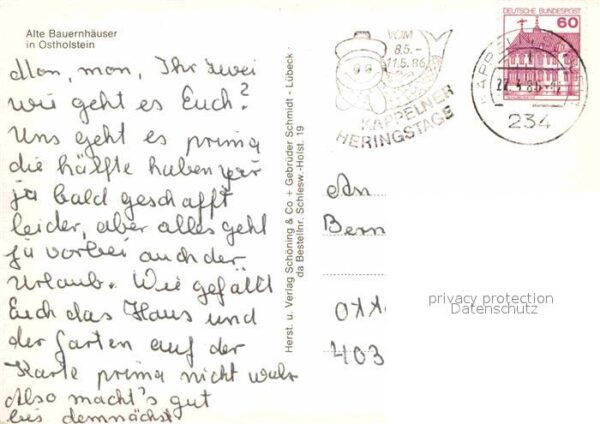 Alte Bauernhäuser
in Ostholstein
Mon, mon, Ihr zwei
wie geht es Euch?
Uns geht es prima
die hälfte haben wir
ja bald geschafft
leider, aber alles geht
ja vorbei auch der
Urlaub. Wie gefällt
Euch das Haus und
der Garten auf der
Karte prima nicht wahr
Also macht's gut
bis demnächst
Herst. u. Verlag Schöning & Co + Gebrüder Schmidt - Lübeck
da Bestellnr. Schlesw.-Holst. 19
VOM
8.5.-
11.5.86
KAPPELNER
HERINGSTAGE
DEUTSCHE BUNDESPOST
60
KAPPELN
234
An
Bern
OXX
403
privacy protection
Datenschutz